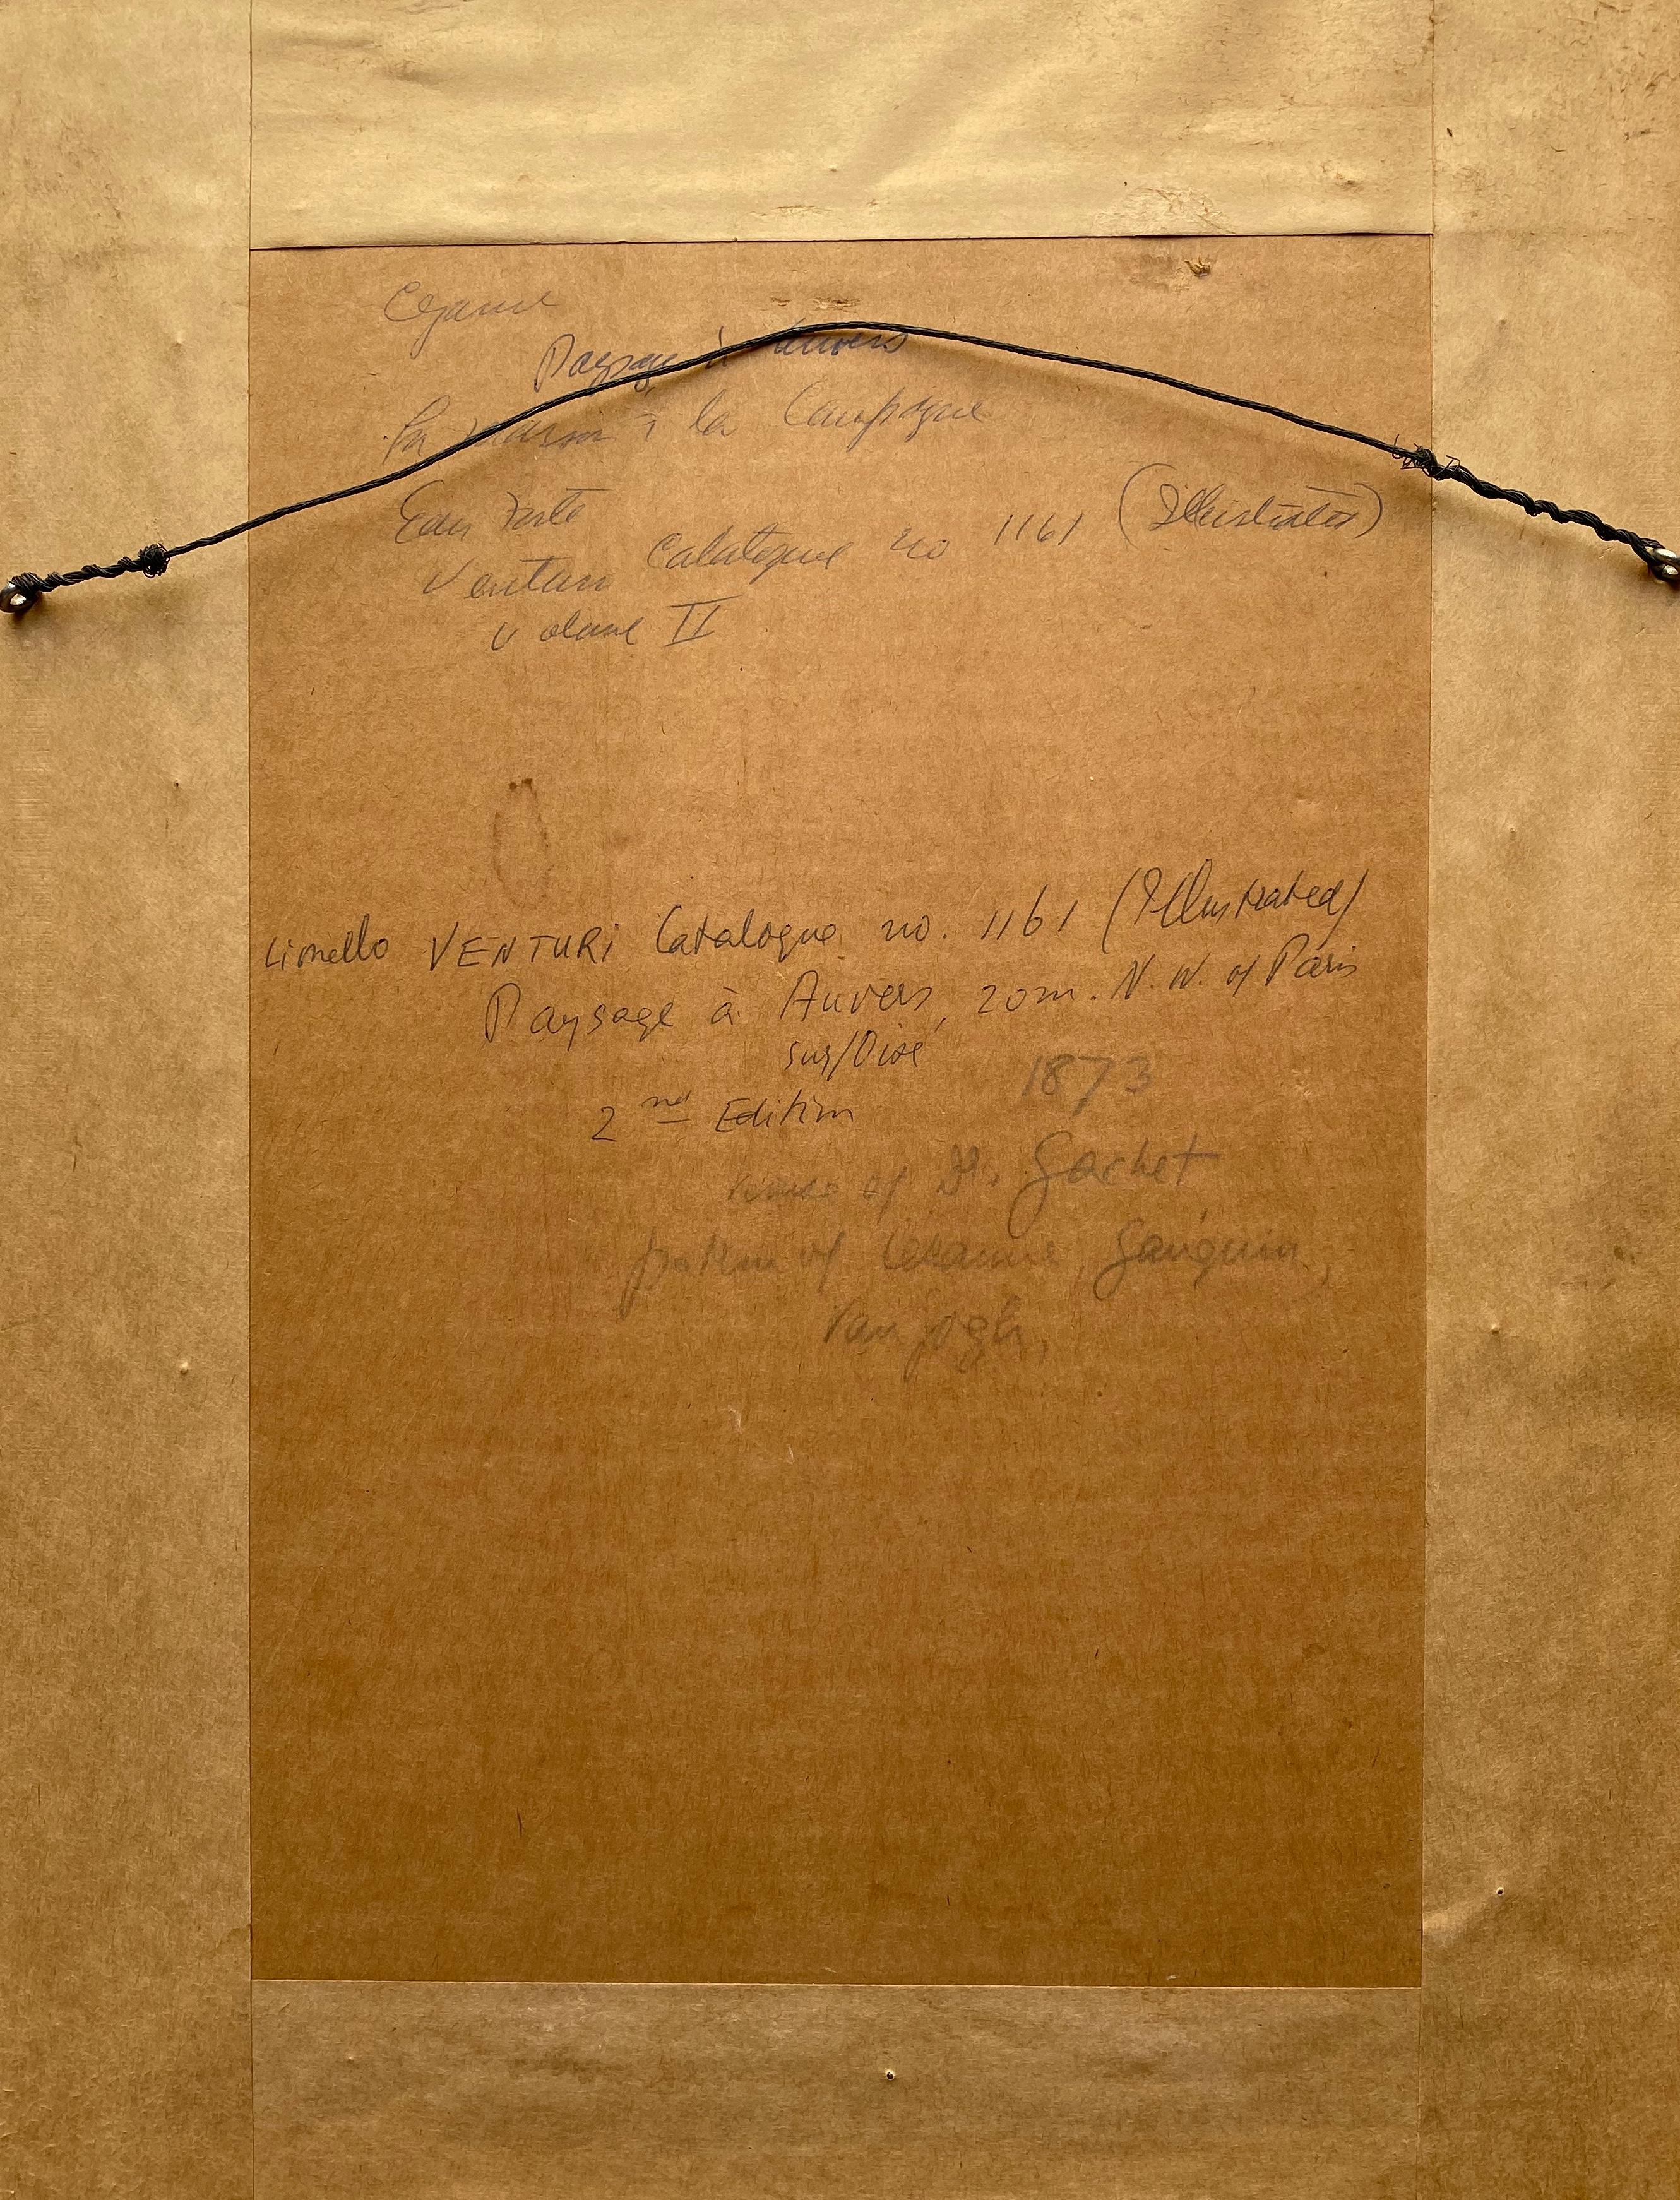 Cézanne
Paysage à Auvers
la Campagne
Eau forte
Venturi Catalogue no 1161 (Illustrated)
Volume II
Lionello VENTURI Catalogue no. 1161 (Illustrated)
Paysage à Auvers, 20m. N.W. of Paris
sur/Oise
1873
2nd Edition
house of Dr. Gachet
patron of Cezanne, Gauguin,
Van Gogh,